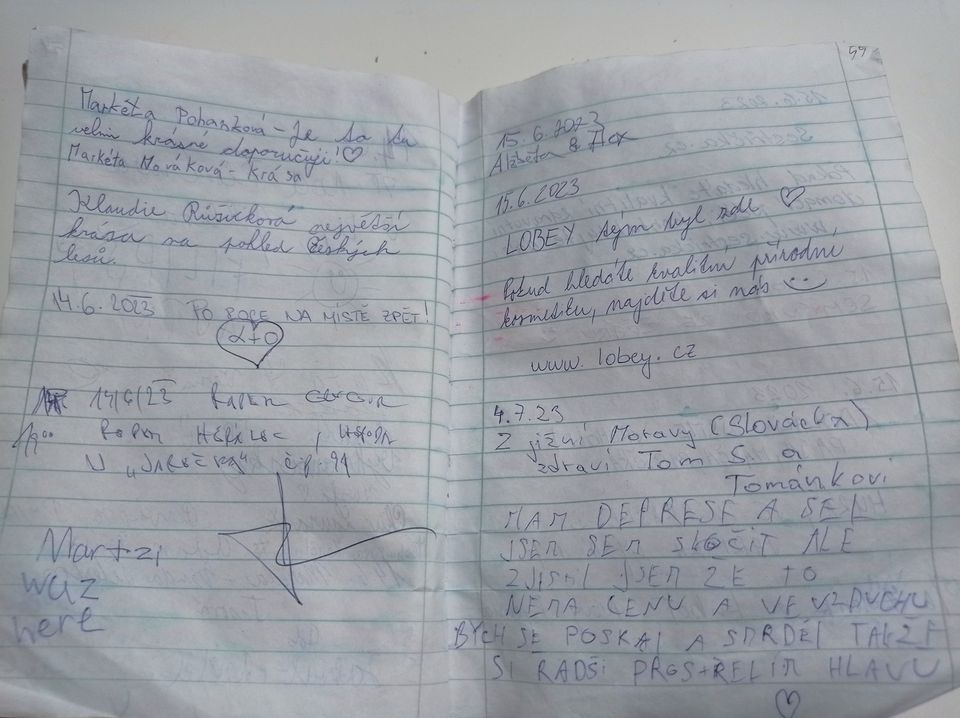 Markéta Pohanková - je to tu
velmi krásné doporučuji! ♡
Markéta Nováková - krása
Klaudie Růžičková největší
krása na pohled českých
lesů.
14.6.2023 PO ROCE NA MÍSTĚ ZPĚT!
14/6/23
19:00
U „ " č.p. 91
Martzi
waz
here
59
15.6.2023
Alžběta &
15.6.2023
LOBEY tým byl zde ♡
Pokud hledáte kvalitní přírodní
kosmetiku, najděte si nás
www.lobey.cz
4.7.23
Z jižní Moravy (Slovácka)
zdraví Tom S. a
Tománkovi
MAM DEPRESE A ŠEL
JSEM SEM SKOČIT ALE
ZJISTIL JSEM ZE TO
NEMA CENU A VE VZDUCHU
BYCH SE POSRAL A SMRDĚL TAKŽE
SI RADŠI PROSTŘELIM HLAVU
♡